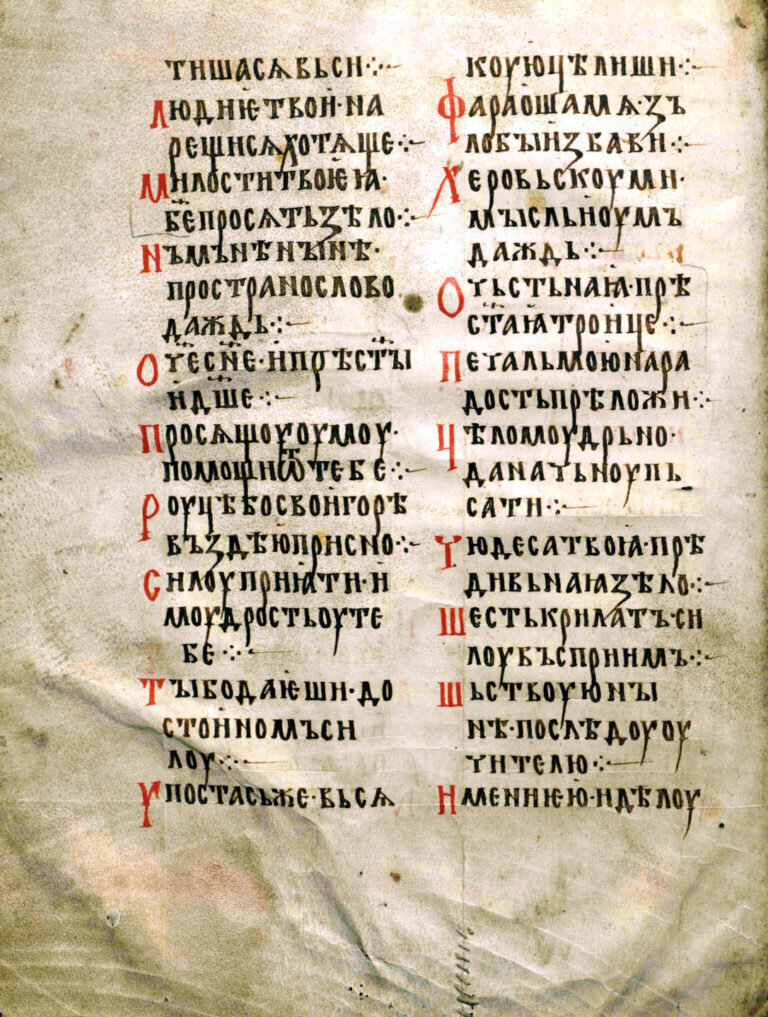 тишасѧвьси·:·
людиѥтвои·на
рещисѧхотѧще·:·
милоститвоѥꙗ·
бепросѧтьꙁѣло·:·
нъмьнѣнꙑнѣ·
пространослово
даждь·:·
оч҃есн҃е·ипрѣст҃ꙑ
ид҃ше·:·
просѧщоуоумоу·
помощиѿтебе·:·
роуцѣбосвоигорѣ
въꙁдѣюприсно·:·
силоуприꙗти·и
моудростьоуте
бе·:·
тꙑбодаѥши·до
стоиномъси
лоу·:·
ѵпостасьже·вьсѧ
коуюцѣлиши·:·
фараошамѧ·ꙁъ
лобꙑиꙁбави·:·
херовьскоуми·
мꙑсльноумъ
даждь·:·
очьстьнаꙗ·прѣ
ст҃аꙗтроице·:·
печальмоюнара
достьпрѣложи·:·
цѣломоудрьно·
даначьноупь
сати·:·
чюдесатвоꙗ·прѣ
дивьнаꙗꙁѣло·:·
шестькрилатъ·си
лоувъсприимъ·:·
шьствоуюнꙑ
нѣ·послѣдоуоу
чителю·:·
имениѥю·идѣлоу